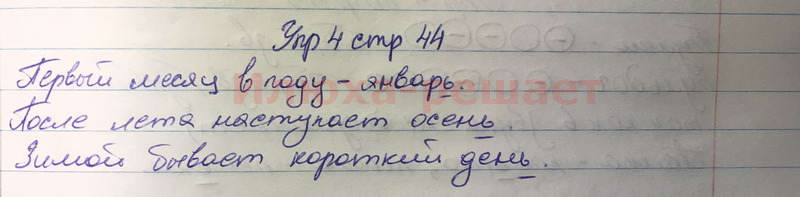 Упр 4 стр 44
Первый месяц в году - январь.
Илюха-решает
После лета наступает осень.
Зимой бывает короткий день.